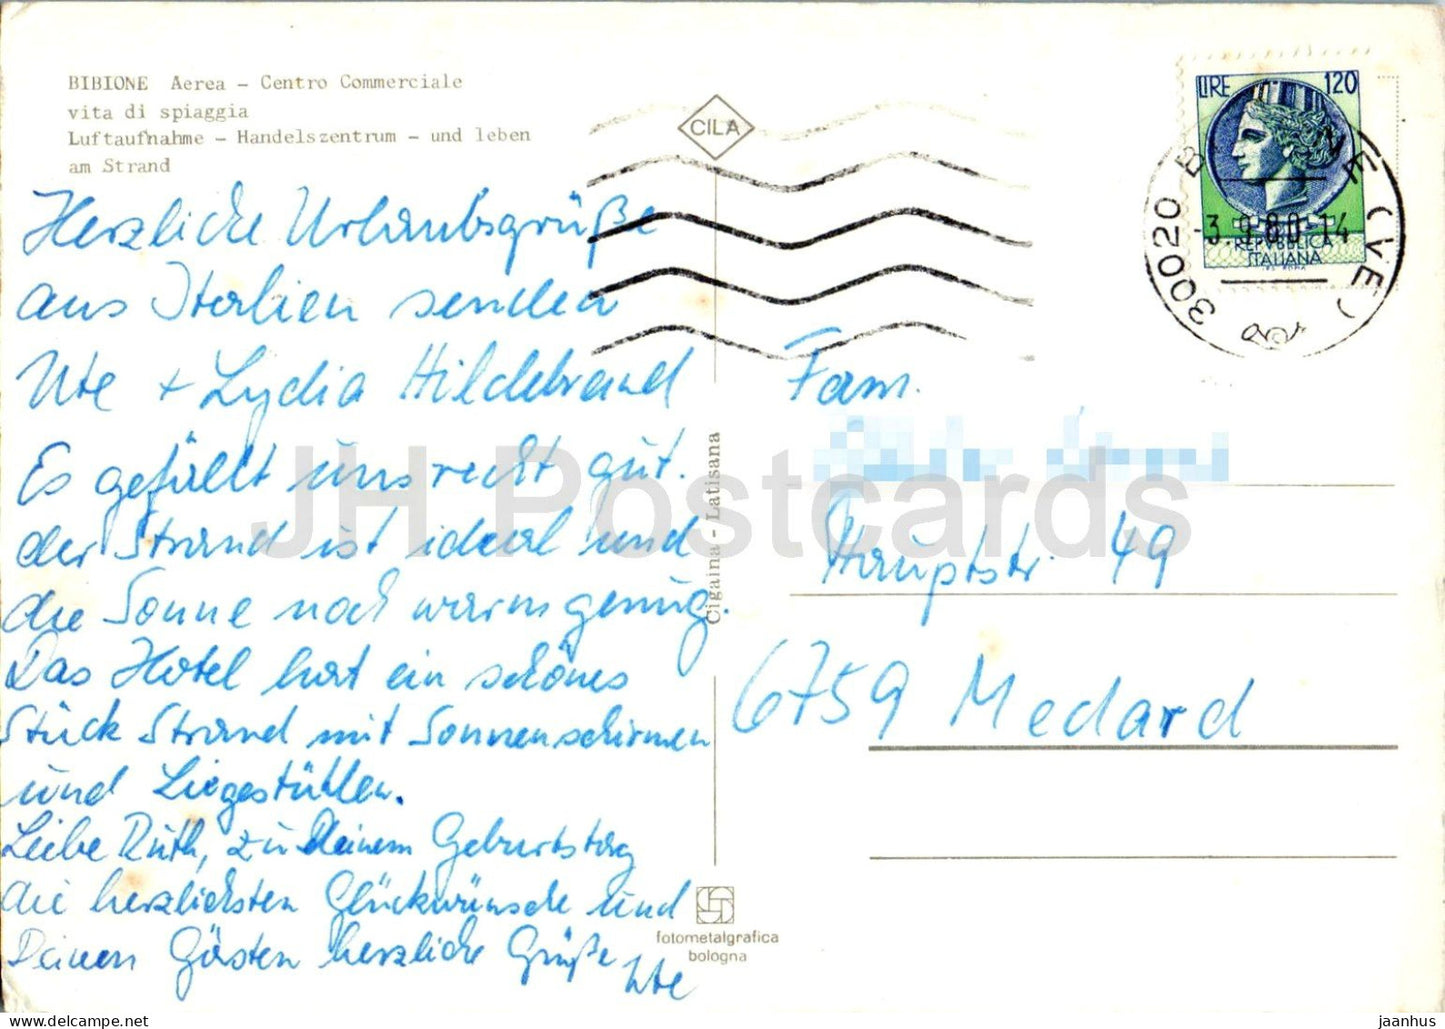 BIBIONE Aerea - Centro Commerciale
vita di spiaggia
Luftaufnahme - Handelszentrum - und leben
am Strand
Herzliche Urlaubsgrüße
aus Italien senden
Ute + Lydia Hildebrand
Es gefällt uns recht gut.
der Strand ist ideal und
die Sonne noch warm genug.
Das Hotel hat ein schönes
Stück Strand mit Sonnenschirmen
und Liegestühlen.
Liebe Ruth, zu Deinem Geburtstag
die herzlichsten Glückwünsche und
Deinen Gästen herzliche Grüße
Ute
CILA
LIRE 120
REPVBBLICA
ITALIANA
30020 (VE)
-3.9.80.14
Fam.
Hauptstr. 49
6759 Medard
Cigaina - Latisana
fotometalgrafica
bologna
JH Postcards
jaanhus